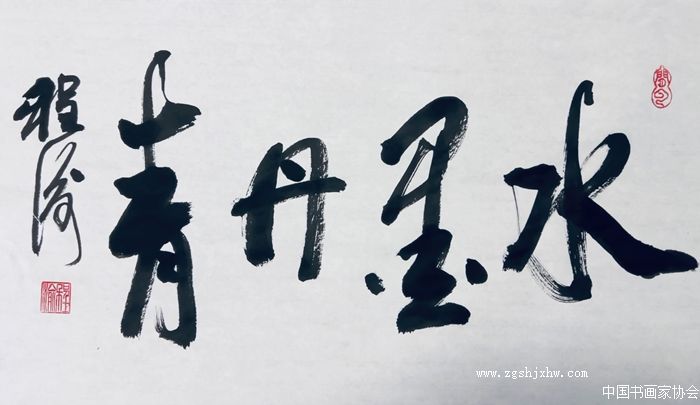 水墨丹青
程渝
www.zgshjxhw.com
中国书画家协会